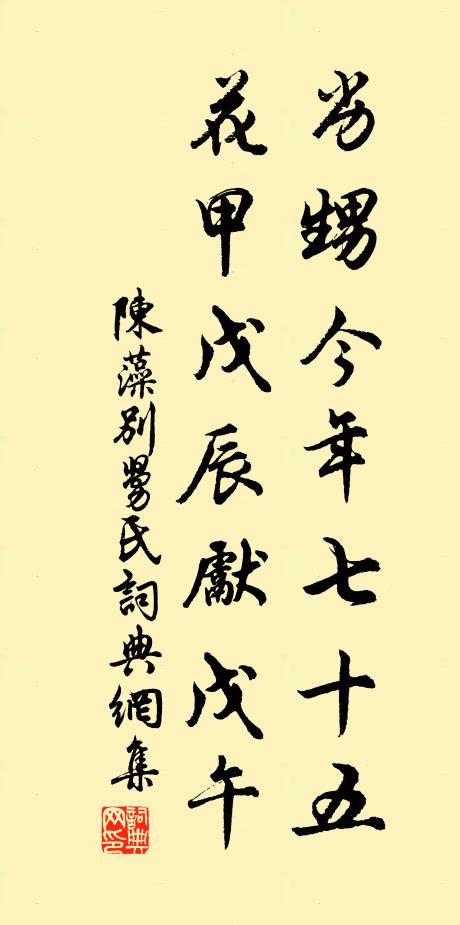 劣甥今年七十五
花甲戊辰獻戊午
陳藻別舅氏詞典網集
詞典网印